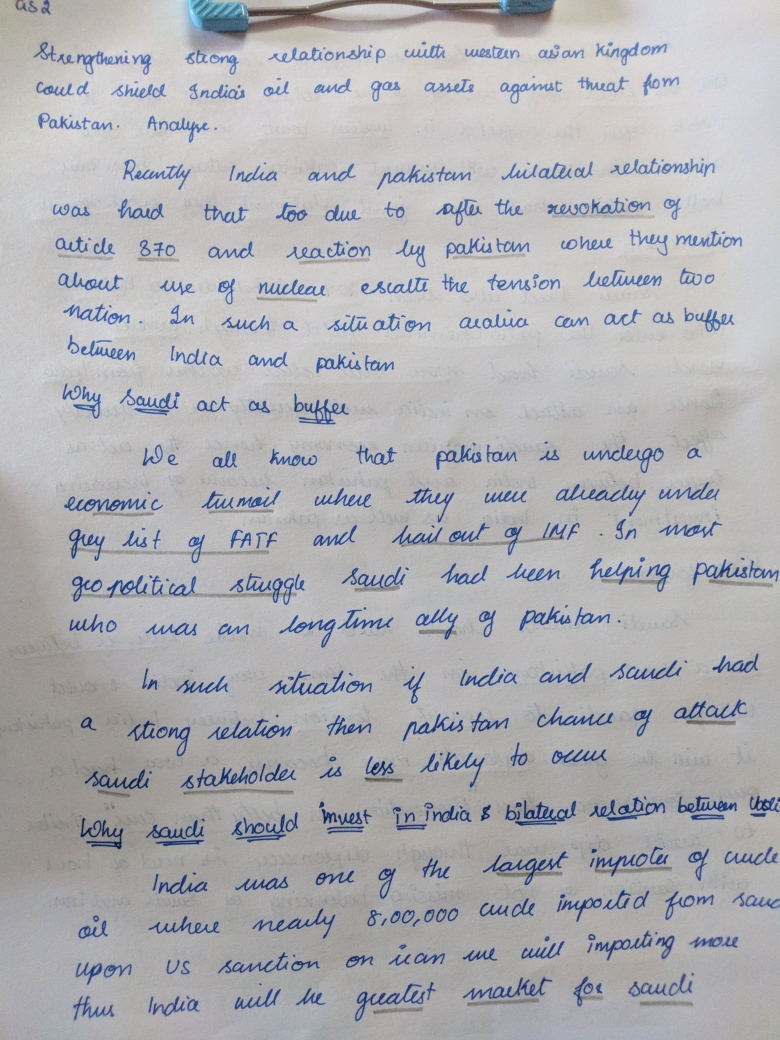 GS2
Strengthening strong relationship with western asian kingdom
could shield India's oil and gas assets against threat from
Pakistan. Analyse.
Recently India and pakistan bilateral relationship
was hard that too due to after the revokation of
article 370 and reaction by pakistan where they mention
about use of nuclear escalte the tension between two
nation. In such a situation arabia can act as buffer
between India and pakistan
Why Saudi act as buffer
We all know that pakistan is undergo a
economic turmoil where they were already under
grey list of FATF and bail out of IMF. In most
geopolitical struggle saudi had been helping pakistan
who was an longtime ally of pakistan.
In such situation if India and saudi had
a strong relation then pakistan chance of attack
saudi stakeholder is less likely to occur
Why saudi should invest in india & bilateral relation between
India was one of the largest improter of crude
oil where nearly 8,00,000 crude imported from
upon US sanction on iran we will importing more
thus India will be greatest market for saudi